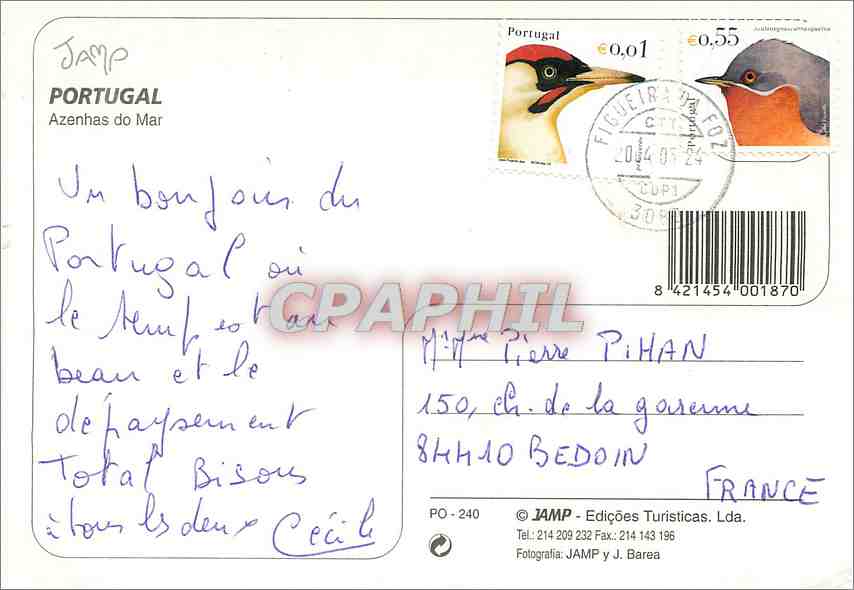 JAMP
PORTUGAL
Azenhas do Mar
Un bonjour du
Portugal où
le temps est au
beau et le
dépaysement
Total Bisous
à tous les deux Cécile
Portugal €0,01
€0,55
Portugal
FIGUEIRA DA FOZ
CTT
2004 05 24
8 421454 001870
CPAPHIL
Mr Mme Pierre PIHAN
150, ch. de la garenne
84410 BEDOIN
FRANCE
PO - 240
© JAMP - Edições Turisticas. Lda.
Tel.: 214 209 232 Fax.: 214 143 196
Fotografia: JAMP y J. Barea